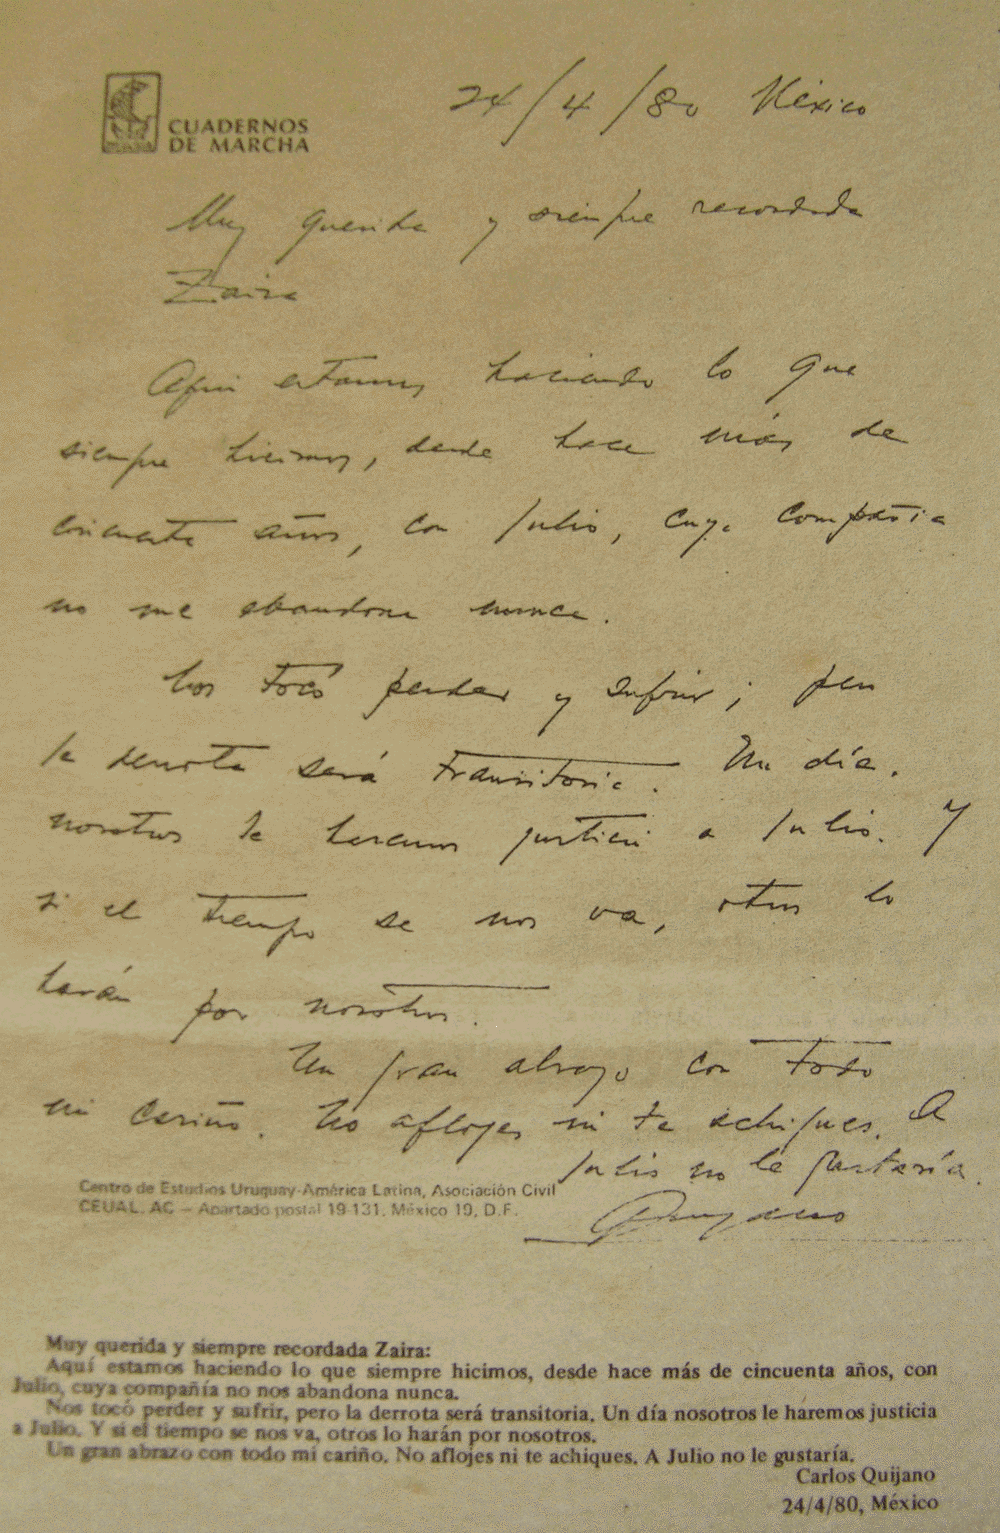 CUADERNOS
DE MARCHA
24/4/80 México
Muy querida y siempre recordada
Zaira
Aquí estamos haciendo lo que
siempre hicimos, desde hace más de
cincuenta años, con Julio, cuya compañía
no me abandona nunca.
Nos tocó perder y sufrir; pero
la derrota será transitoria. Un día.
nosotros le haremos justicia a Julio. Y
si el tiempo se nos va, otros lo
harán por nosotros.
Un gran abrazo con todo
mi cariño. No aflojes ni te achiques. A
Julio no le gustaría.
Quijano
Centro de Estudios Uruguay-América Latina, Asociación Civil
CEUAL. AC — Apartado postal 19-131. México 19, D.F.
Muy querida y siempre recordada Zaira:
Aquí estamos haciendo lo que siempre hicimos, desde hace más de cincuenta años, con
Julio, cuya compañía no nos abandona nunca.
Nos tocó perder y sufrir, pero la derrota será transitoria. Un día nosotros le haremos justicia
a Julio. Y si el tiempo se nos va, otros lo harán por nosotros.
Un gran abrazo con todo mi cariño. No aflojes ni te achiques. A Julio no le gustaría.
Carlos Quijano
24/4/80, México